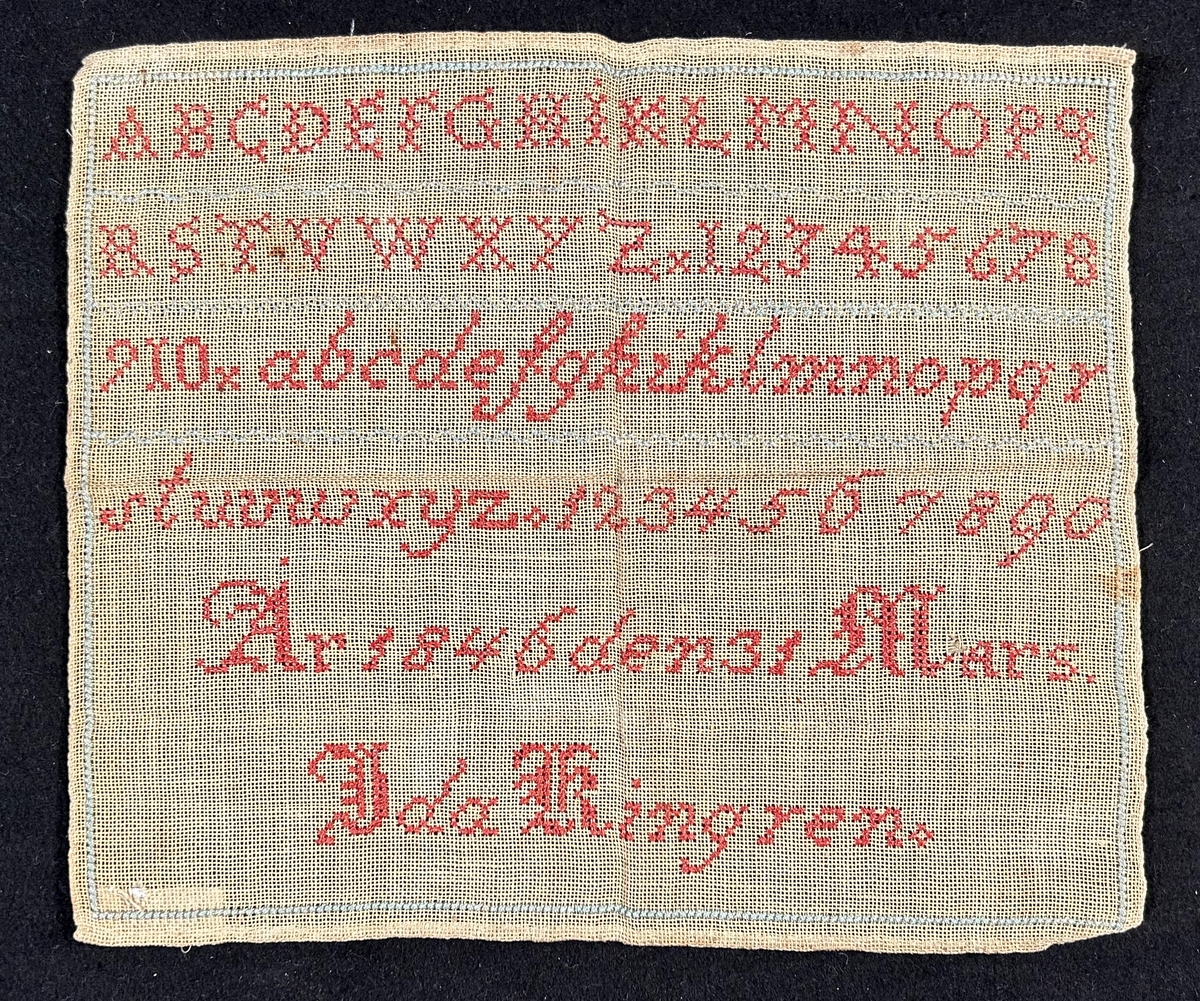 ABCDEFGHiKLMNOPQ
RSTVWXYZ×12345678
910×abcdefghiklmnopqr
stuvwxyz⋄1234567890
År 1846 den 31 Mars.
Ida Ringren⋄